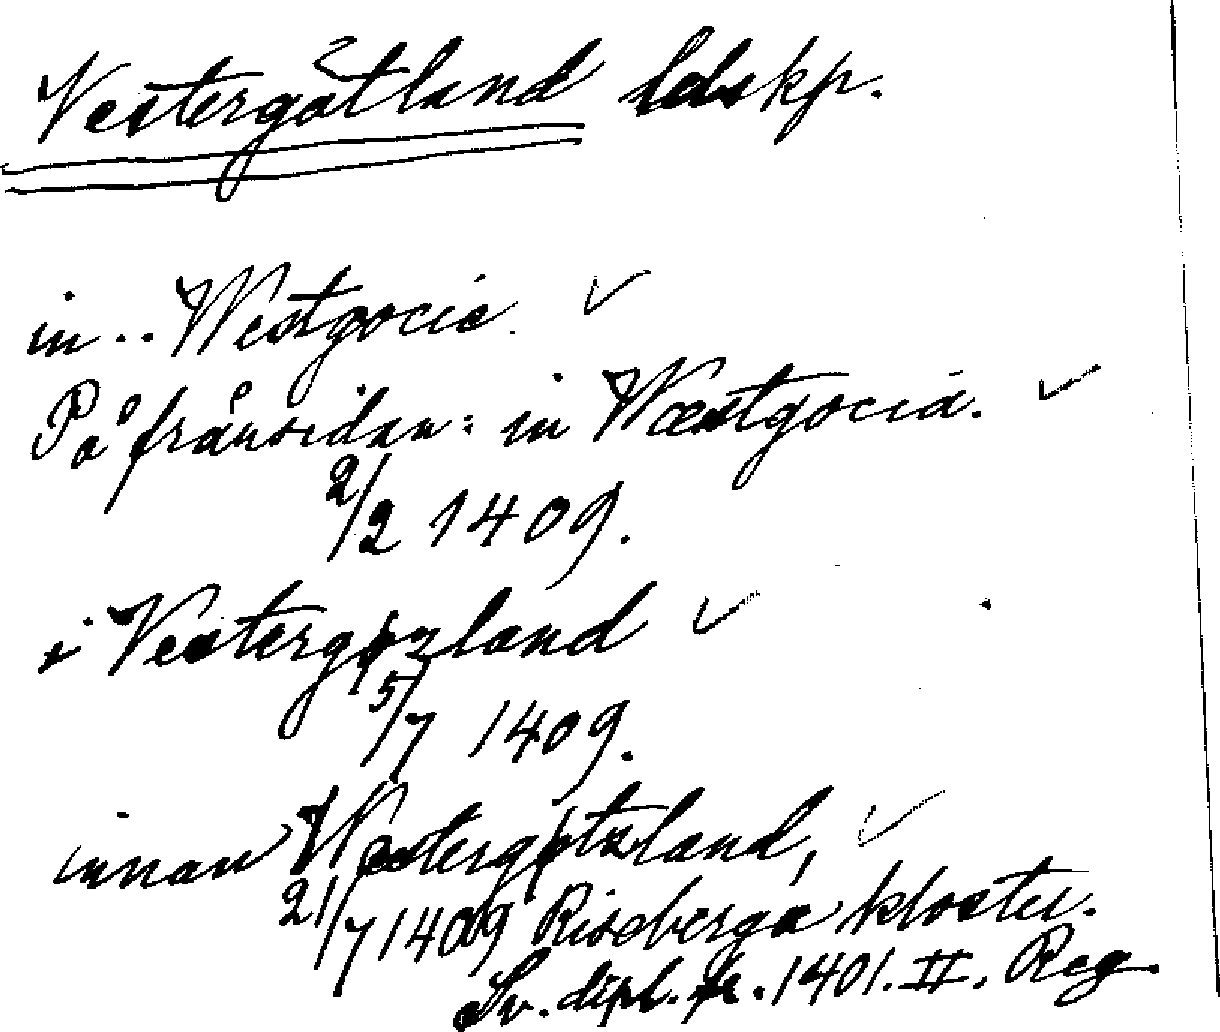 Vestergötland ldskp.
in .. Westgocia.
På frånsidan: in Wæstgocia.
2/2 1409.
i Vestergøzland
5/7 1409.
innan Westergøtzland,
21/7 1409 Riseberga kloster.
Sv. dipl. fr. 1401. II, Reg.